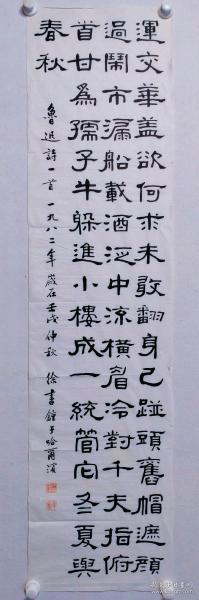 運交華盖欲何求未敢翻身已踫頭舊帽遮顔
過鬧市漏船載酒泛中流橫眉冷對千夫指俯
首甘為孺子牛躲進小樓成一統管它冬夏與
春秋
魯迅詩一首 一九八二年歲在壬戌仲秋 徐書鐘于哈爾濱